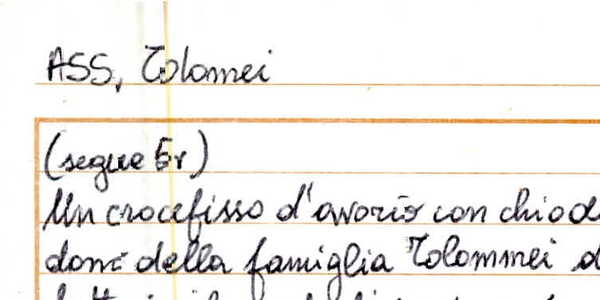 ASS, Tolomei
(segue 5r)
Un crocefisso d'avorio con chiod
done della famiglia Tolommei d